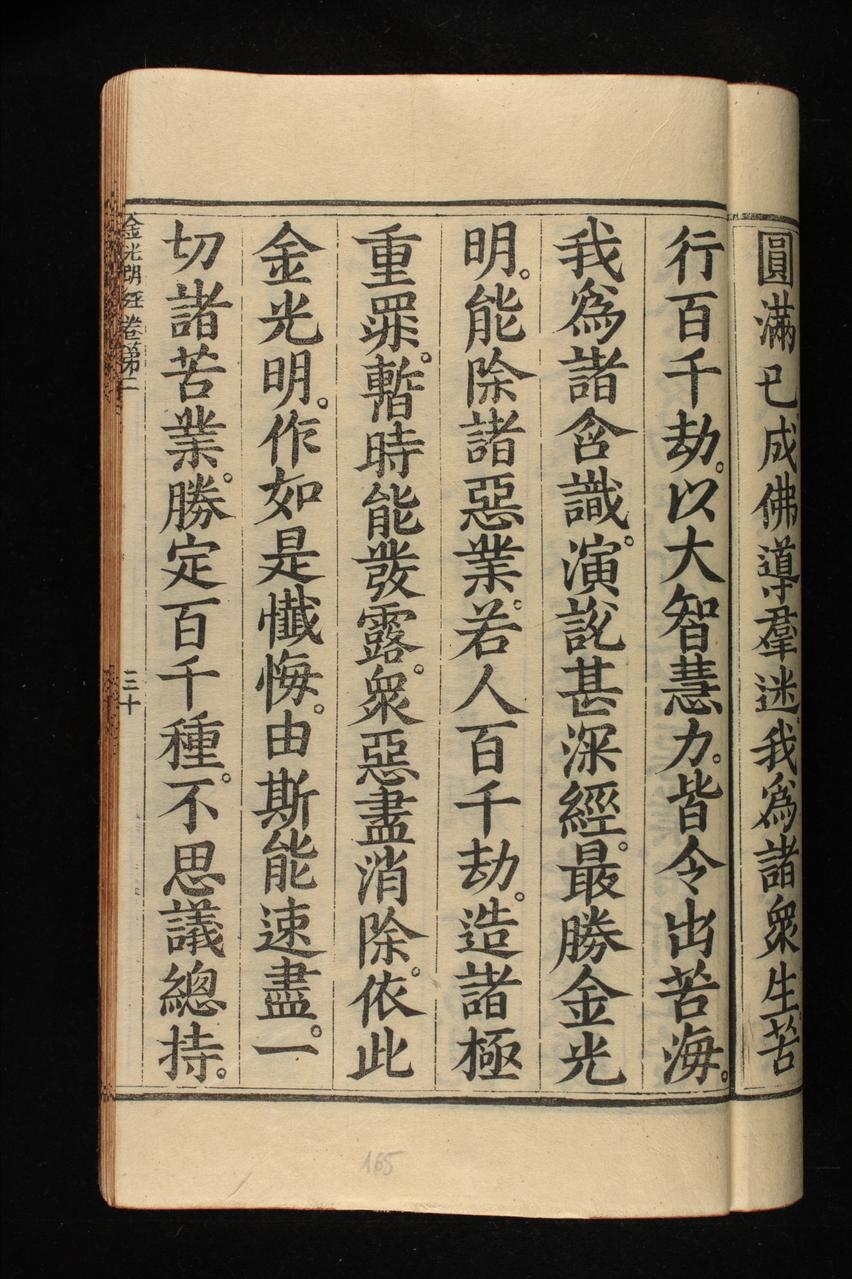 圓滿已成佛導羣迷。我爲諸衆生苦
行百千劫。以大智慧力。皆令出苦海。
我爲諸含識。演說甚深經。最勝金光
明。能除諸惡業。若人百千劫。造諸極
重罪。暫時能發露。衆惡盡消除。依此
金光明。作如是懺悔。由斯能速盡。一
切諸苦業。勝定百千種。不思議總持。
金光明經卷第二
三十
165